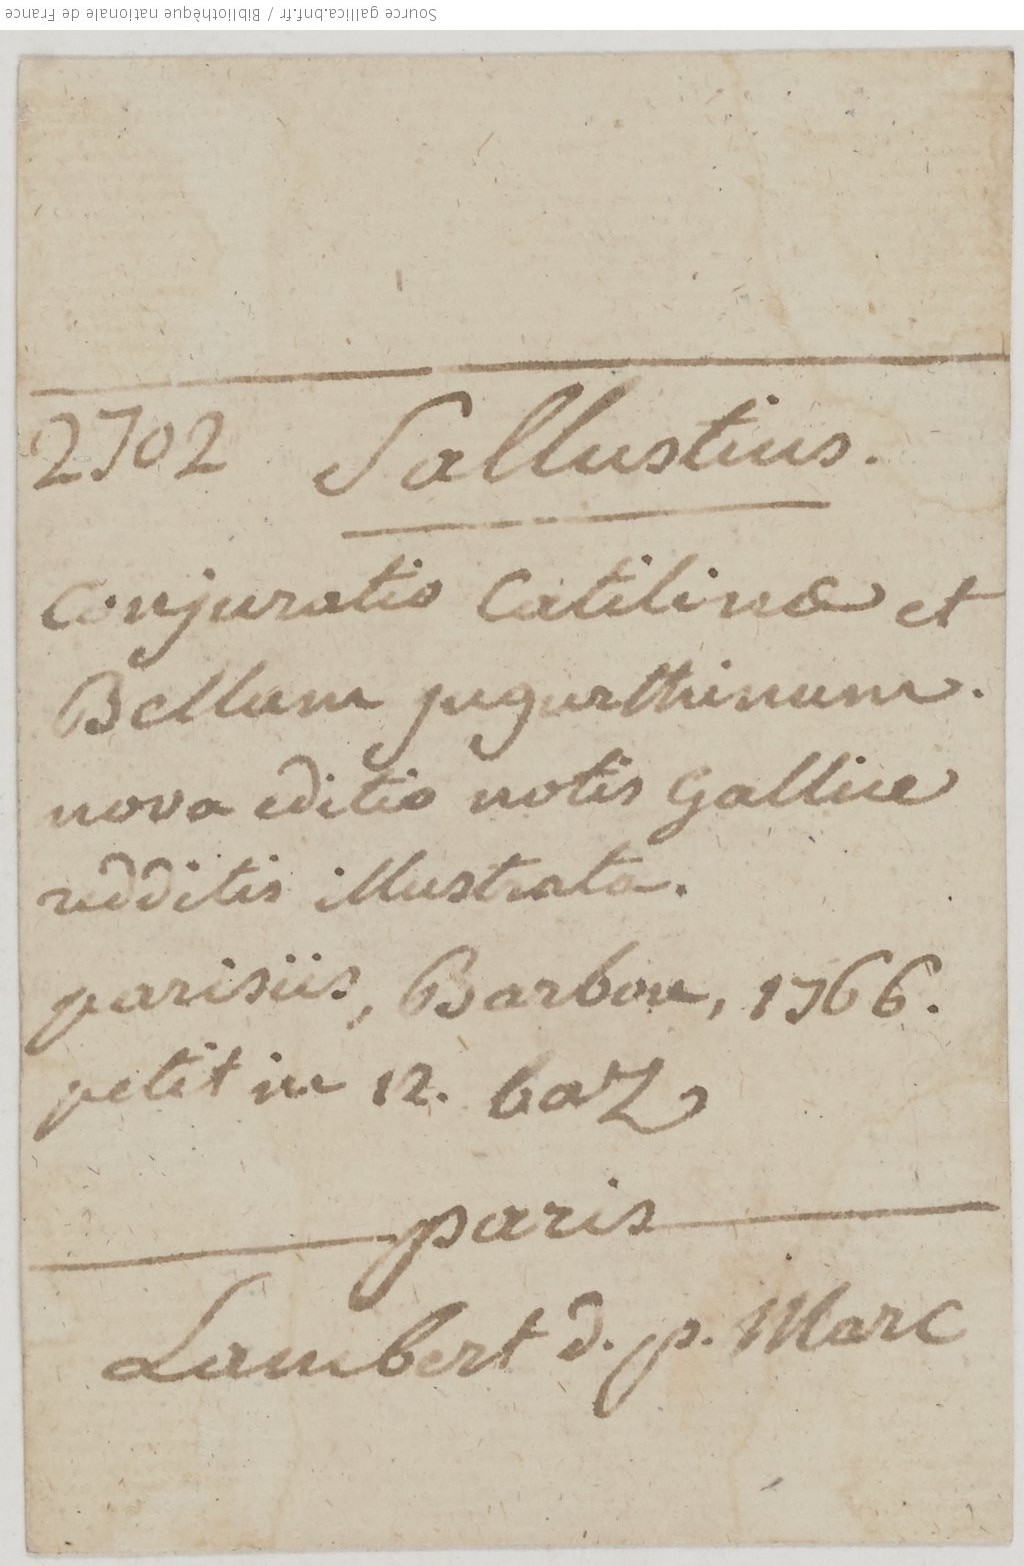 Source gallica.bnf.fr / Bibliothèque nationale de France
2702 Sallustius.
Conjuratio Catilinæ et
Bellum jugurthinum.
nova editio notis Gallice
redditis illustrata.
parisiis, Barbou, 1766.
petit in 12. baz
paris
Lambert d. p. Marc